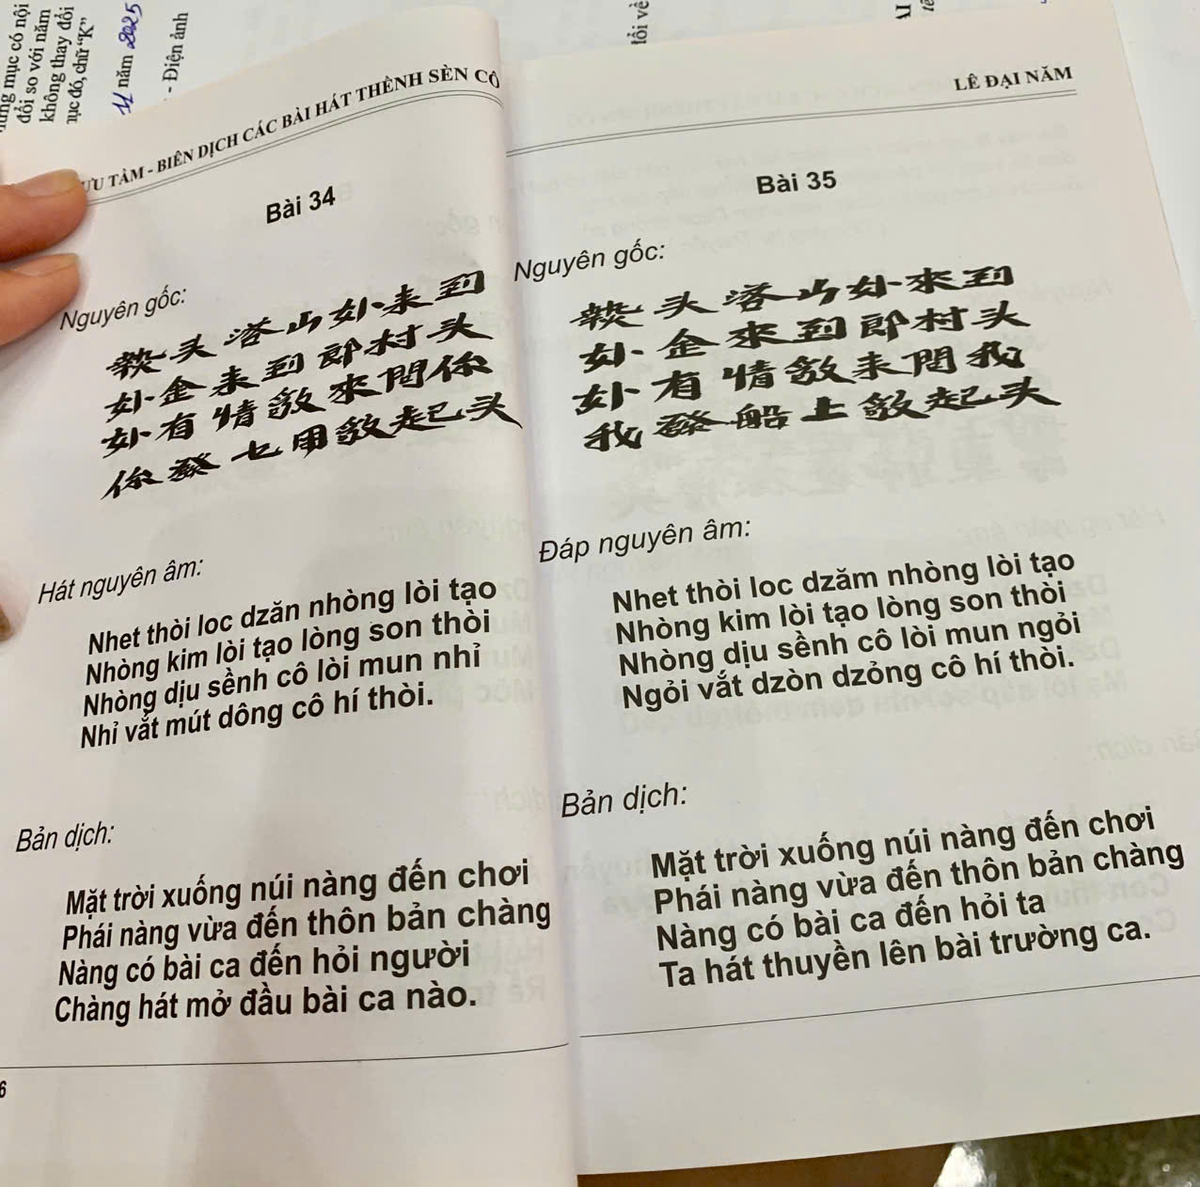 đổi so với năm
không thay đổi
11 năm 2025
- Điện ảnh
ƯU TẦM - BIÊN DỊCH CÁC BÀI HÁT THÈNH SÈN CÔ
Bài 34
Nguyên gốc:
头 山 来 到
来 到 郎 村 头
有 情 來 問 你
你 發 乜 用 起 头
Hát nguyên âm:
Nhet thòi loc dzăn nhòng lòi tạo
Nhòng kim lòi tạo lòng son thòi
Nhòng dịu sềnh cô lòi mun nhỉ
Nhỉ vắt mút dông cô hí thòi.
Bản dịch:
Mặt trời xuống núi nàng đến chơi
Phái nàng vừa đến thôn bản chàng
Nàng có bài ca đến hỏi người
Chàng hát mở đầu bài ca nào.
6
LÊ ĐẠI NĂM
Bài 35
Nguyên gốc:
头 山 來 到
來 到 郎 村 头
有 情 来 問 我
我 發 船 上 起 头
Đáp nguyên âm:
Nhet thòi loc dzăm nhòng lòi tạo
Nhòng kim lòi tạo lòng son thòi
Nhòng dịu sềnh cô lòi mun ngỏi
Ngỏi vắt dzòn dzỏng cô hí thòi.
Bản dịch:
Mặt trời xuống núi nàng đến chơi
Phái nàng vừa đến thôn bản chàng
Nàng có bài ca đến hỏi ta
Ta hát thuyền lên bài trường ca.